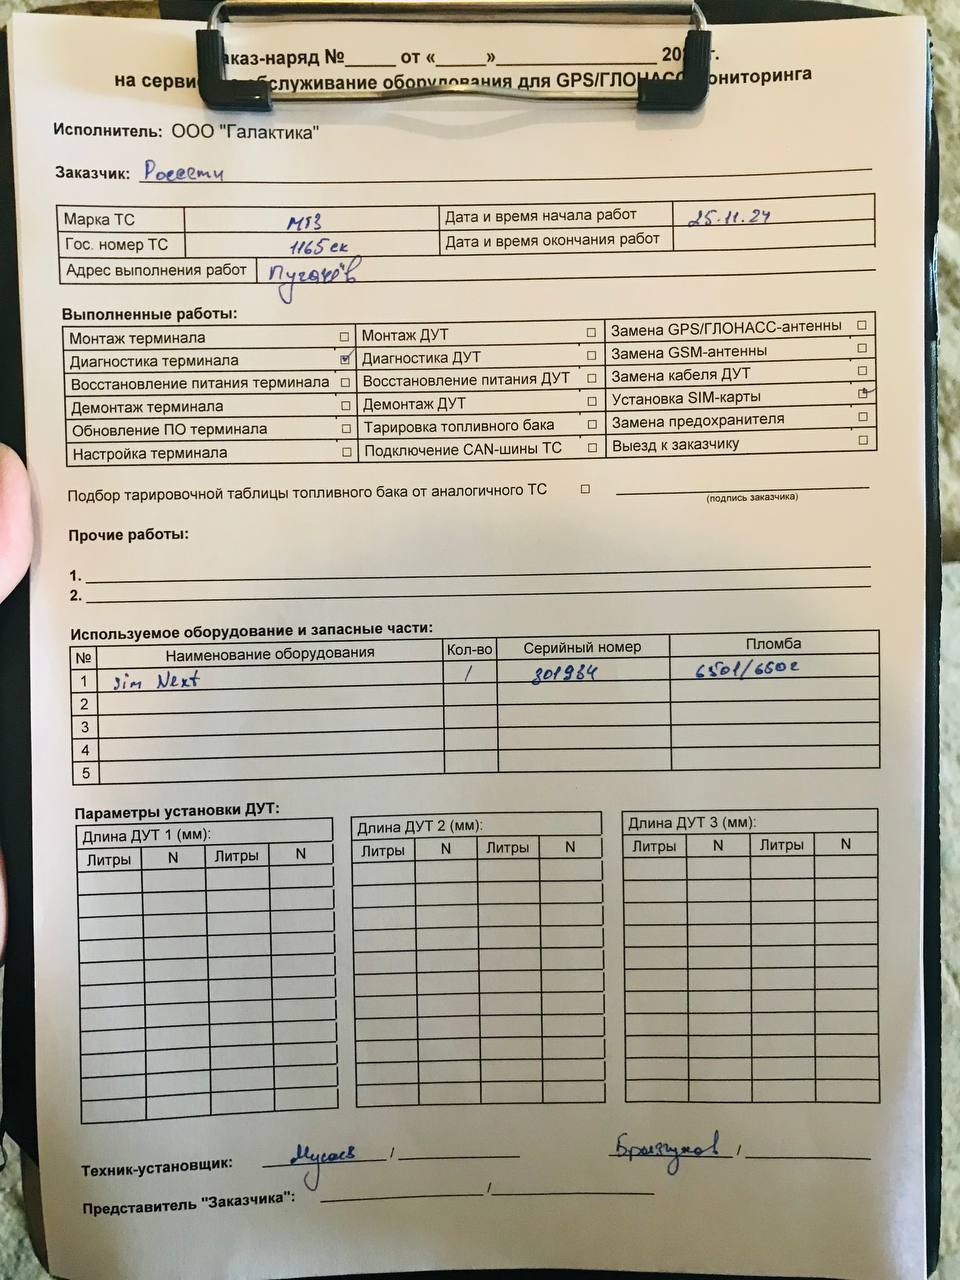 аказ-наряд №_____ от «_____»________________ 202 г.
на серви обслуживание оборудования для GPS/ГЛОНАСС мониторинга
Исполнитель: ООО "Галактика"
Заказчик: Россети
Марка ТС МТЗ Дата и время начала работ 25.11.24
Гос. номер ТС 1165ек Дата и время окончания работ
Адрес выполнения работ Пугачёв
Выполненные работы:
Монтаж терминала ☐ Монтаж ДУТ ☐ Замена GPS/ГЛОНАСС-антенны ☐
Диагностика терминала ☑ Диагностика ДУТ ☐ Замена GSM-антенны ☐
Восстановление питания терминала ☐ Восстановление питания ДУТ ☐ Замена кабеля ДУТ ☐
Демонтаж терминала ☐ Демонтаж ДУТ ☐ Установка SIM-карты ☑
Обновление ПО терминала ☐ Тарировка топливного бака ☐ Замена предохранителя ☐
Настройка терминала ☐ Подключение CAN-шины ТС ☐ Выезд к заказчику ☐
Подбор тарировочной таблицы топливного бака от аналогичного ТС ☐
(подпись заказчика)
Прочие работы:
1.
2.
Используемое оборудование и запасные части:
№ Наименование оборудования Кол-во Серийный номер Пломба
1 sim Next 1 301934 6501/6502
2
3
4
5
Параметры установки ДУТ:
Длина ДУТ 1 (мм): Длина ДУТ 2 (мм): Длина ДУТ 3 (мм):
Литры N Литры N Литры N Литры N Литры N Литры N
Техник-установщик: Мусаев / Брызгунов /
Представитель "Заказчика": /